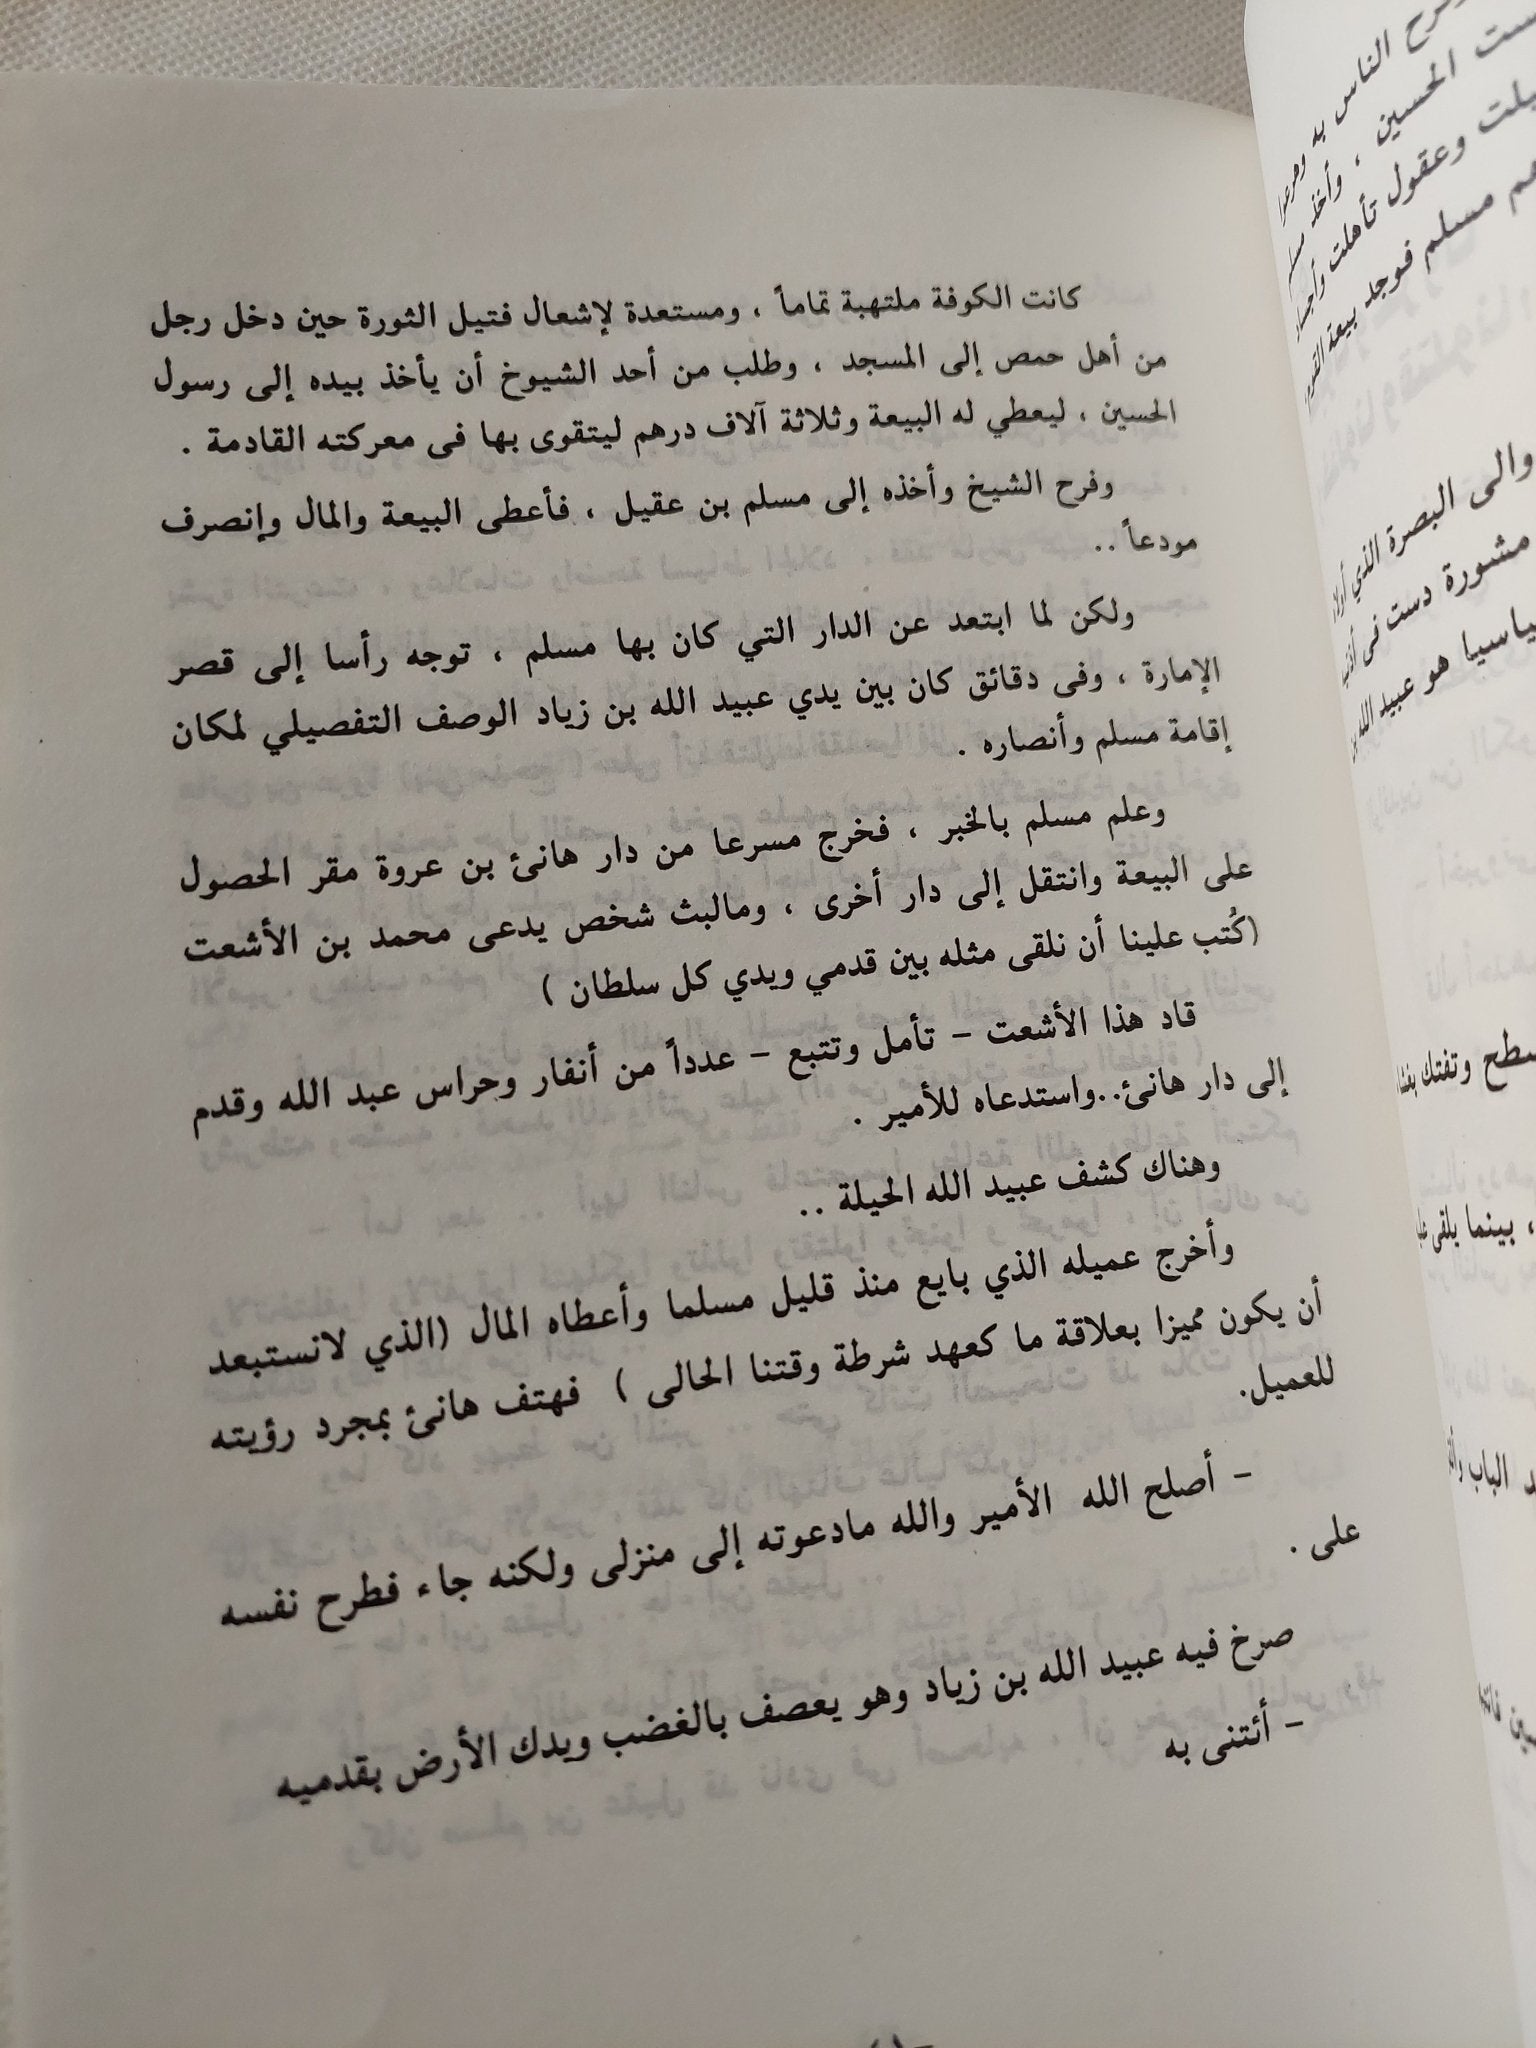 كانت الكوفة ملتهبة تماماً ، ومستعدة لإشعال فتيل الثورة حين دخل رجل
من أهل حمص إلى المسجد ، وطلب من أحد الشيوخ أن يأخذ بيده إلى رسول
الحسين ، ليعطي له البيعة وثلاثة آلاف درهم ليتقوى بها فى معركته القادمة .
وفرح الشيخ وأخذه إلى مسلم بن عقيل ، فأعطى البيعة والمال وإنصرف
مودعاً ..
ولكن لما ابتعد عن الدار التي كان بها مسلم ، توجه رأسا إلى قصر
الإمارة ، وفى دقائق كان بين يدي عبيد الله بن زياد الوصف التفصيلي لمكان
إقامة مسلم وأنصاره .
وعلم مسلم بالخبر ، فخرج مسرعا من دار هانئ بن عروة مقر الحصول
على البيعة وانتقل إلى دار أخرى ، ومالبث شخص يدعى محمد بن الأشعت
(كُتب علينا أن نلقى مثله بين قدمي ويدي كل سلطان )
قاد هذا الأشعت – تأمل وتتبع – عدداً من أنفار وحراس عبد الله وقدم
إلى دار هانئ..واستدعاه للأمير .
وهناك كشف عبيد الله الحيلة ..
وأخرج عميله الذي بايع منذ قليل مسلما وأعطاه المال (الذي لانستبعد
أن يكون مميزا بعلاقة ما كعهد شرطة وقتنا الحالى ) فهتف هانئ بمجرد رؤيته
للعميل.
– أصلح الله الأمير والله مادعوته إلى منزلى ولكنه جاء فطرح نفسه
على .
صرخ فيه عبيد الله بن زياد وهو يعصف بالغضب ويدك الأرض بقدميه
– أئتنى به
الناس به
ست الحسين ، وأخذ مسلم
وعقول تأهلت
مسلم فوجد بيعة
والى البصرة الذي
مشورة دست فى
هو عبيد الله بن
وتفتك
، بينما يلقى
الباب